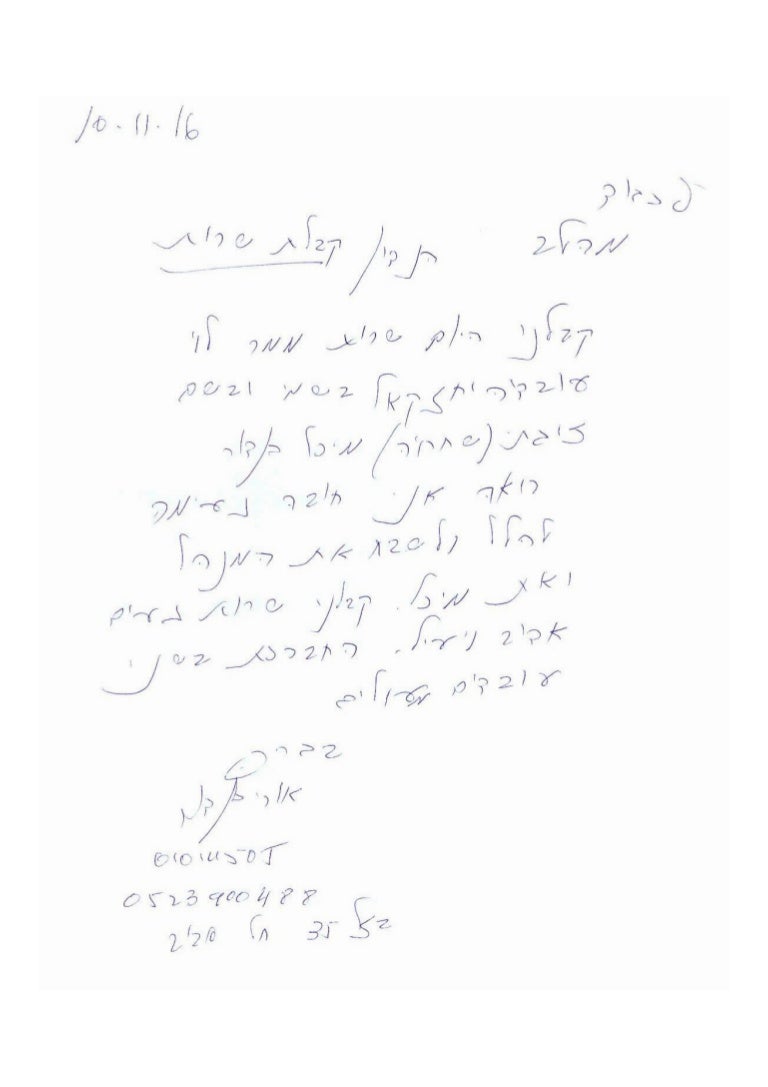 10.11.16
לכבוד
מהלב הנדון קבלת שרות
קבלתי היום שרות ממר לוי
עובדיה יחזקאל בשמי ובשם
זוגתי (שחרורה) מיכל
רואה אני חובה נעימה
להלל ולשבח את המנהל
ואת מיכל. קבלנו שרות נעים
אדיב ויעיל. התברכת בשני
עובדים מעולים
בברכה
אורי
0523900488
בצל 35 תל אביב